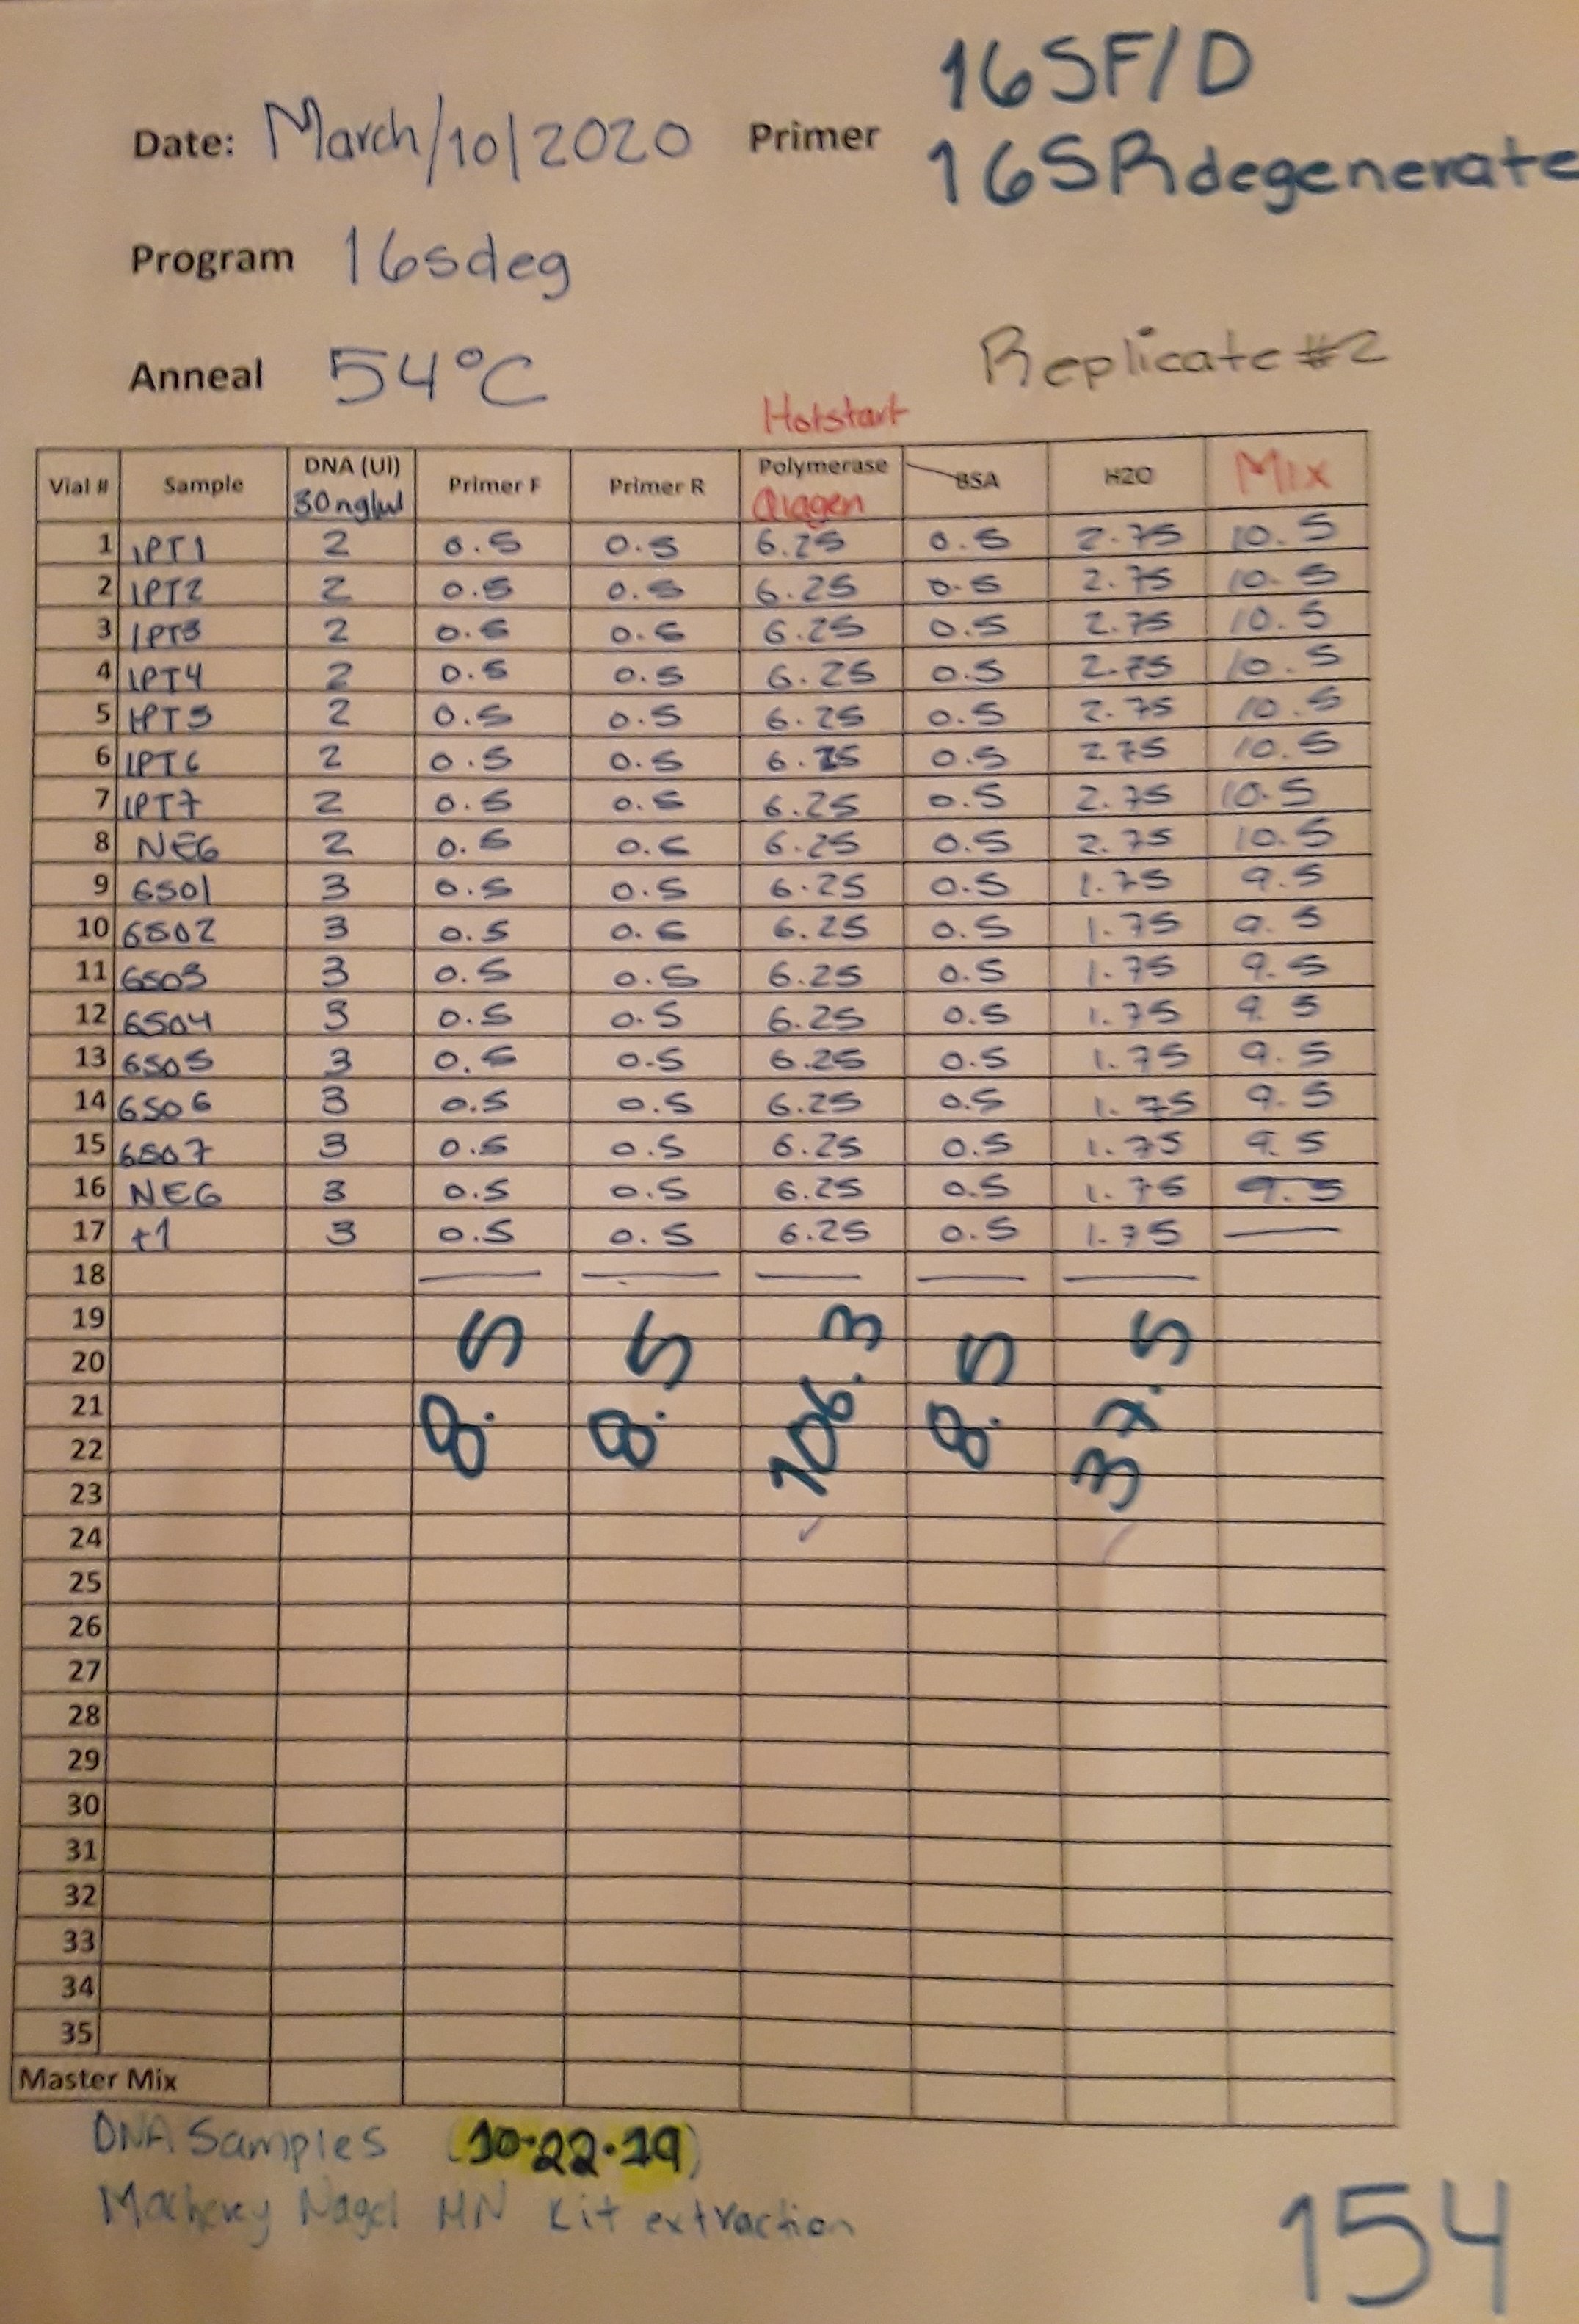 16SF/D
Date: March/10/2020 Primer
16SRdegenerate
Program 16sdeg
Replicate #2
Anneal 54°C
Hotstart
Vial # Sample DNA (Ul) 30ng/ul Primer F Primer R Polymerase Qiagen BSA H2O Mix
1 IPT1 2 0.5 0.5 6.25 0.5 2.75 10.5
2 IPT2 2 0.5 0.5 6.25 0.5 2.75 10.5
3 IPT3 2 0.5 0.5 6.25 0.5 2.75 10.5
4 IPT4 2 0.5 0.5 6.25 0.5 2.75 10.5
5 IPT5 2 0.5 0.5 6.25 0.5 2.75 10.5
6 IPT6 2 0.5 0.5 6.25 0.5 2.75 10.5
7 IPT7 2 0.5 0.5 6.25 0.5 2.75 10.5
8 NEG 2 0.5 0.5 6.25 0.5 2.75 10.5
9 6S01 3 0.5 0.5 6.25 0.5 1.75 9.5
10 6S02 3 0.5 0.5 6.25 0.5 1.75 9.5
11 6S03 3 0.5 0.5 6.25 0.5 1.75 9.5
12 6S04 3 0.5 0.5 6.25 0.5 1.75 9.5
13 6S05 3 0.5 0.5 6.25 0.5 1.75 9.5
14 6S06 3 0.5 0.5 6.25 0.5 1.75 9.5
15 6S07 3 0.5 0.5 6.25 0.5 1.75 9.5
16 NEG 3 0.5 0.5 6.25 0.5 1.75 9.5
17 +1 3 0.5 0.5 6.25 0.5 1.75
18
19
20
21
22
23
8.5 8.5 106.3 8.5 37.5
24
25
26
27
28
29
30
31
32
33
34
35
Master Mix
DNA Samples (10.22.19)
Macherey Nagel MN Kit extraction
154